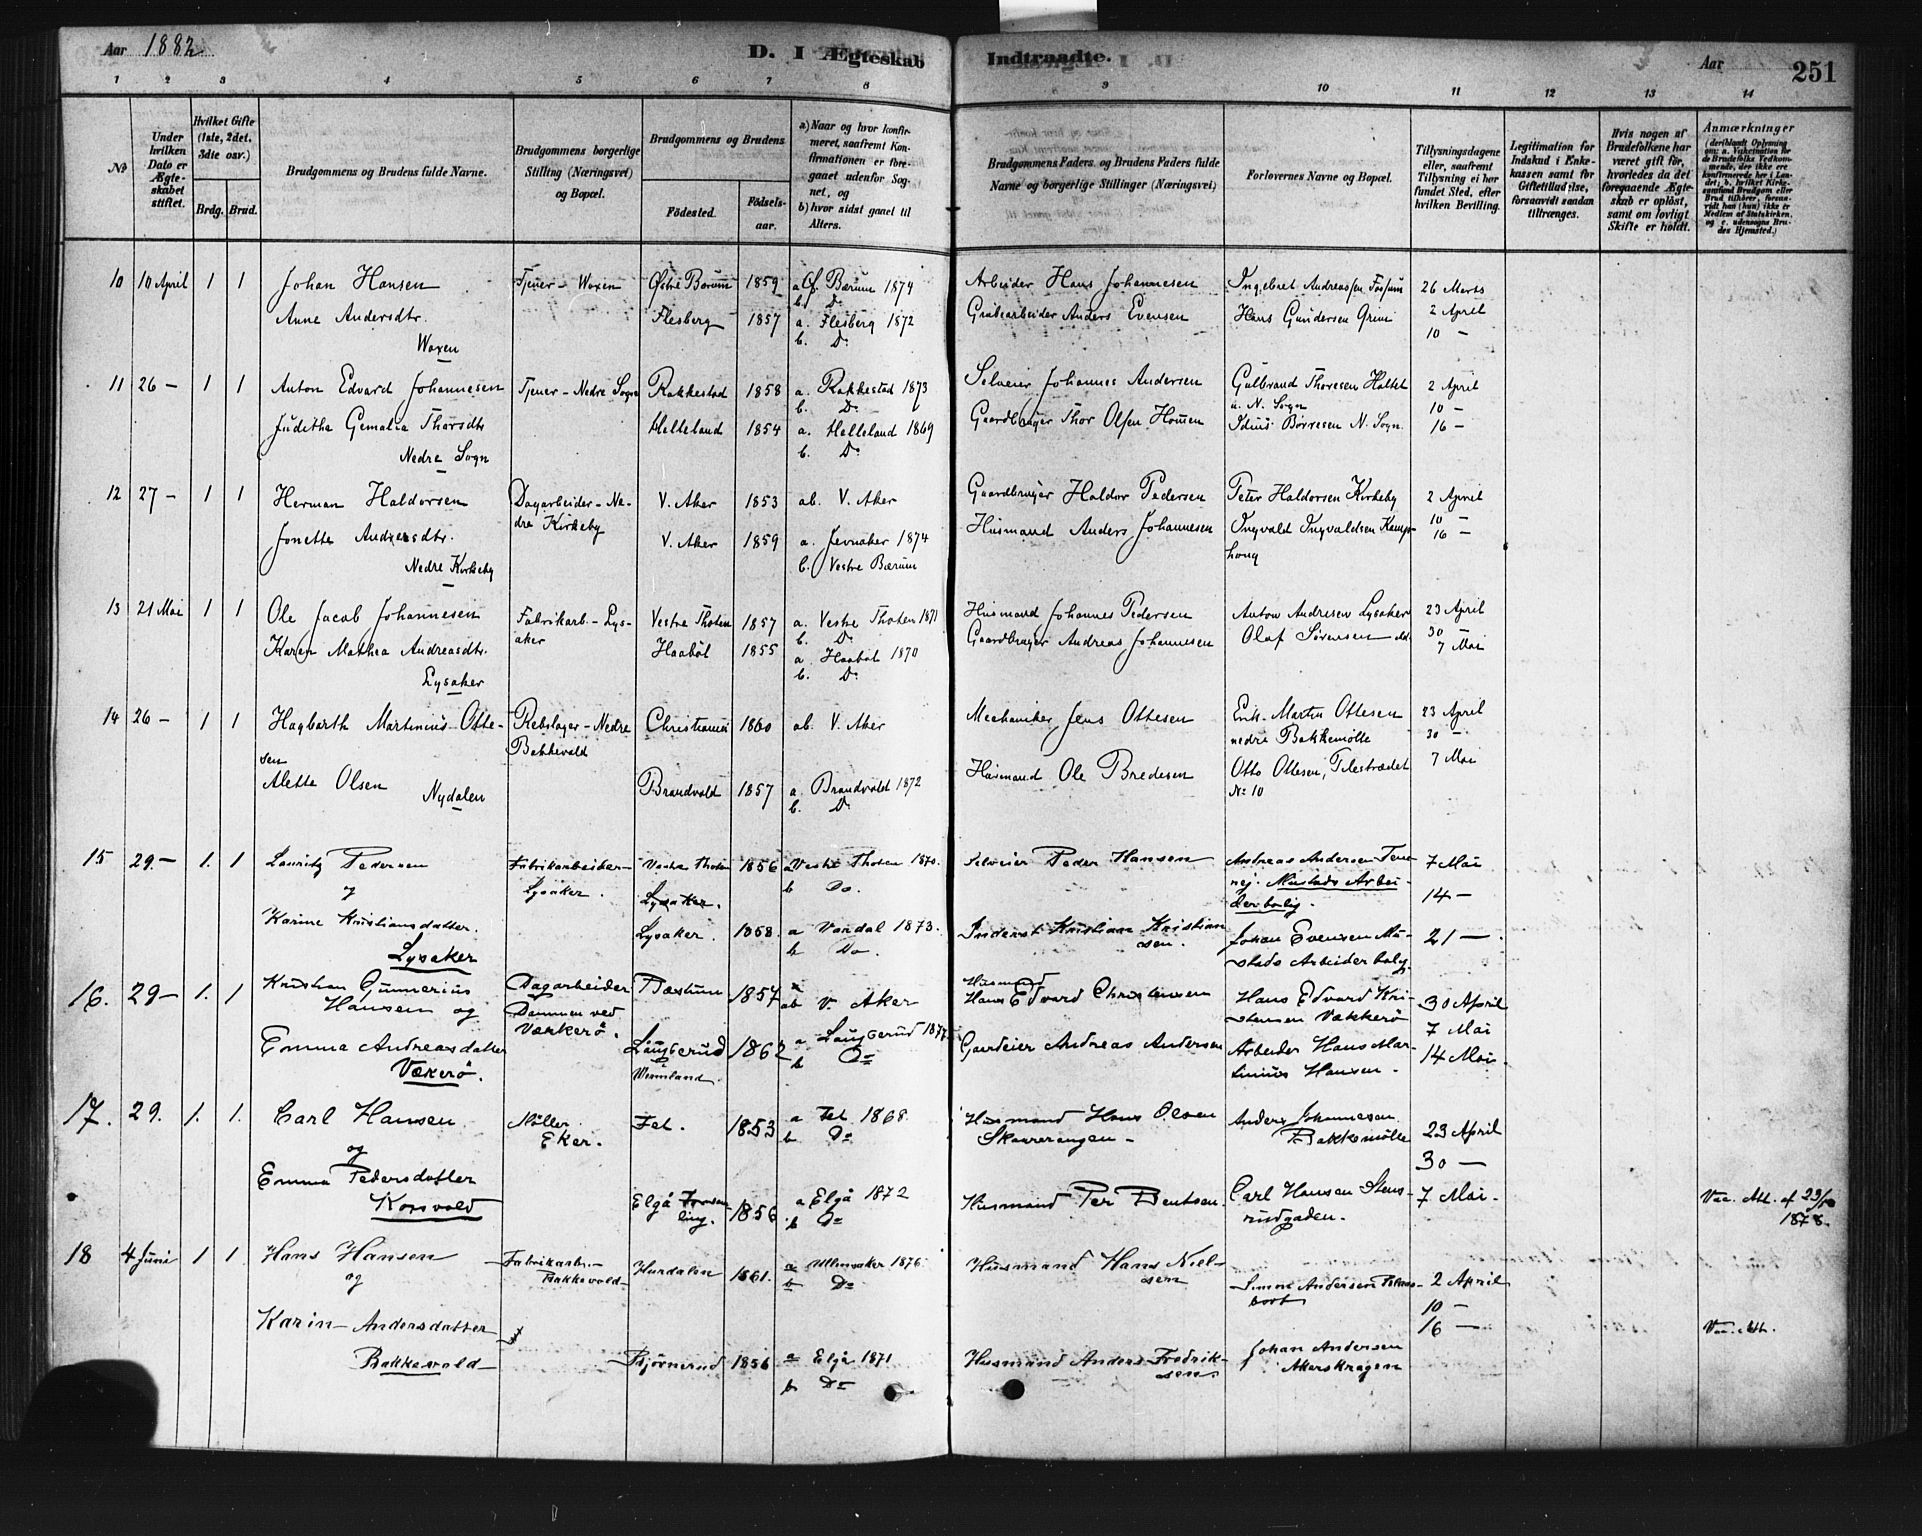 Aar 1882
D. I Ægteskab Indtraadte.
Aar
251
1 2 3 4 5 6 7 8 9 10 11 12 13 14
№
Under hvilken Dato er Ægteskabet stiftet.
Hvilket Gifte (1ste, 2det, 3die osv.)
Brdg. Brud.
Brudgommens og Brudens fulde Navne.
Brudgommens borgerlige Stilling (Næringsvei) og Bopæl.
Brudgommens og Brudens
Fødested. Fødselsaar.
a) Naar og hvor konfirmeret, saafremt Konfirmationen er foregaaet udenfor Sognet, og
b) hvor sidst gaaet til Alters.
Brudgommens Faders og Brudens Faders fulde Navne og borgerlige Stillinger (Næringsvei)
Forlovernes Navne og Bopæl.
Tillysningsdagene eller, saafremt Tillysning ei har fundet Sted, efter hvilken Bevilling.
Legitimation for Indskud i Enkekassen samt for Giftetilladelse, forsaavidt saadan tiltrænges.
Hvis nogen af Brudefolkene har været gift før, hvorledes da det foregaaende Ægteskab er opløst, samt om lovligt Skifte er holdt.
Anmærkninger
10 10 April 1 1 Johan Hansen Tjener - Woxen Østre Bærum 1859 a Ø. Bærum 1874 Arbeider Hans Johannesen Ingebret Andreassen Fossum 26 Marts
b. Do
Anne Andersdtr. Flesberg 1857 a. Flesberg 1872 Grubearbeider Anders Evensen Hans Gundersen Grini 2 April
Woxen b. Do 10 -
11 26 - 1 1 Anton Edvard Johannesen Tjener - Nedre Sogn Rakkestad 1858 a. Rakkestad 1873 Selveier Johannes Andersen Gulbrand Thoresen Haltet 2 April
b. Do N. Sogn 10 -
Juditha Gemalia Thorsdtr Helleland 1854 a. Helleland 1869 Gaardbruger Thor Olsen Houen Idius Børresen N. Sogn. 16 -
Nedre Sogn b. Do
12 27 - 1 1 Herman Haldorsen Dagarbeider - Ne- V. Aker 1853 ab. V. Aker Gaardbruger Haldor Pedersen Peter Haldorsen Kirkeby 2 April
dre Kirkeby 10 -
Jonette Andersdtr. V. Aker 1859 a. Jevnaker 1874 Husmand Anders Johannesen Ingvald Ingvaldsen Kamp- 16 -
Nedre Kirkeby b. Vestre Bærum houg
13 21 Mai 1 1 Ole Jacob Johannesen Fabrikarb. - Lys- Vestre Thoten 1857 a. Vestre Thoten 1871 Husmand Johannes Pedersen Anton Andresen Lysaker 23 April
aker b. Do 30 -
Karen Mathea Andreasdtr. Haabøl 1855 a. Haabøl 1870 Gaardbruger Andreas Johannesen Olaf Sørensen 7 Mai
Lysaker b. Do
14 26 - 1 1 Hagbarth Martinius Otte- Rebslager - Nedre Christiania 1860 ab. V. Aker Mechaniker Jens Ottesen Martin Ottesen 23 April
sen Bakkevold nedre Bakkemølle 30 -
Alette Olsen Brandvold 1857 a. Brandvold 1872 Husmand Ole Bredesen Otto Ottesen, Pilestrædet 7 Mai
Nydalen b. Do № 10
15 29 - 1. 1 Lauritz Pedersen Fabrikarbeider - Vestre Thoten 1856 a Vestre Thoten 1870. Selveier Peder Hansen Andreas Andersen 7 Mai
og Lysaker. Lysaker. b Do. Mustads Arbei- 14 -
derbolig.
Karine Kristiansdatter. Lysaker. 1858. a Vardal 1873. Inderst Kristian Kristian- Johan Evensen Mu- 21 -
Lysaker b Do. sen. stads Arbeiderbolig.
16. 29 - 1. 1 Kristian Gunnerius Dagarbeider Bæstum 1857 ab V. Aker Husmand
Hansen og Dammen ved Hans Edvard Christensen Hans Edvard Kri- 30 April
Værkerö. stensen Vækkerö 7 Mai
Emma Andreasdatter Långserud 1862 a Långserud 1877. Gardeier Andreas Andersen Arbeider Hans Mar- 14 Mai
Vækerö. Wermland. b Do tinius Hansen.
17. 29. 1. 1. Carl Hansen Møller Fet. 1853 a Fet 1868. Husmand Hans Olsen Anders Johannesen
og Eker. b Do Skavrerangen - Bakkemølle 23 April
30 -
Emma Pedersdatter Elgå 1856 a Elgå 1872 Husmand Per Bentsen. Carl Hansen Stens- 7 Mai. Vac. Att. af 23/10
Korsvold b Do rudgaden. 1878.
18 4 Juni 1 1. Hans Hansen Fabrikarb. - Hurdalen 1861. a Ullensaker 1876. Husmand Hans Niel-
og Bakkevold - b Do sen Simen Andersen 2 April
10 -
Karin Andersdatter 16 - Vac. Att.
Bakkevold - Bjørnerud 1856 a Elgå 1871 Husmand Anders Fredrik- Johan Andersen
b Do sen. Akerskragen